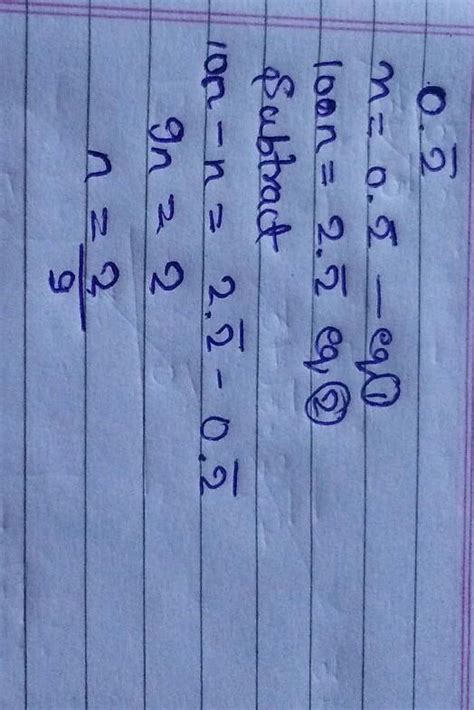 0.2̅
n = 0.2̅ – eq ①
100n = 2.2̅ eq ②
Subtract
10n – n = 2.2̅ – 0.2̅
9n = 2
n = 2/9